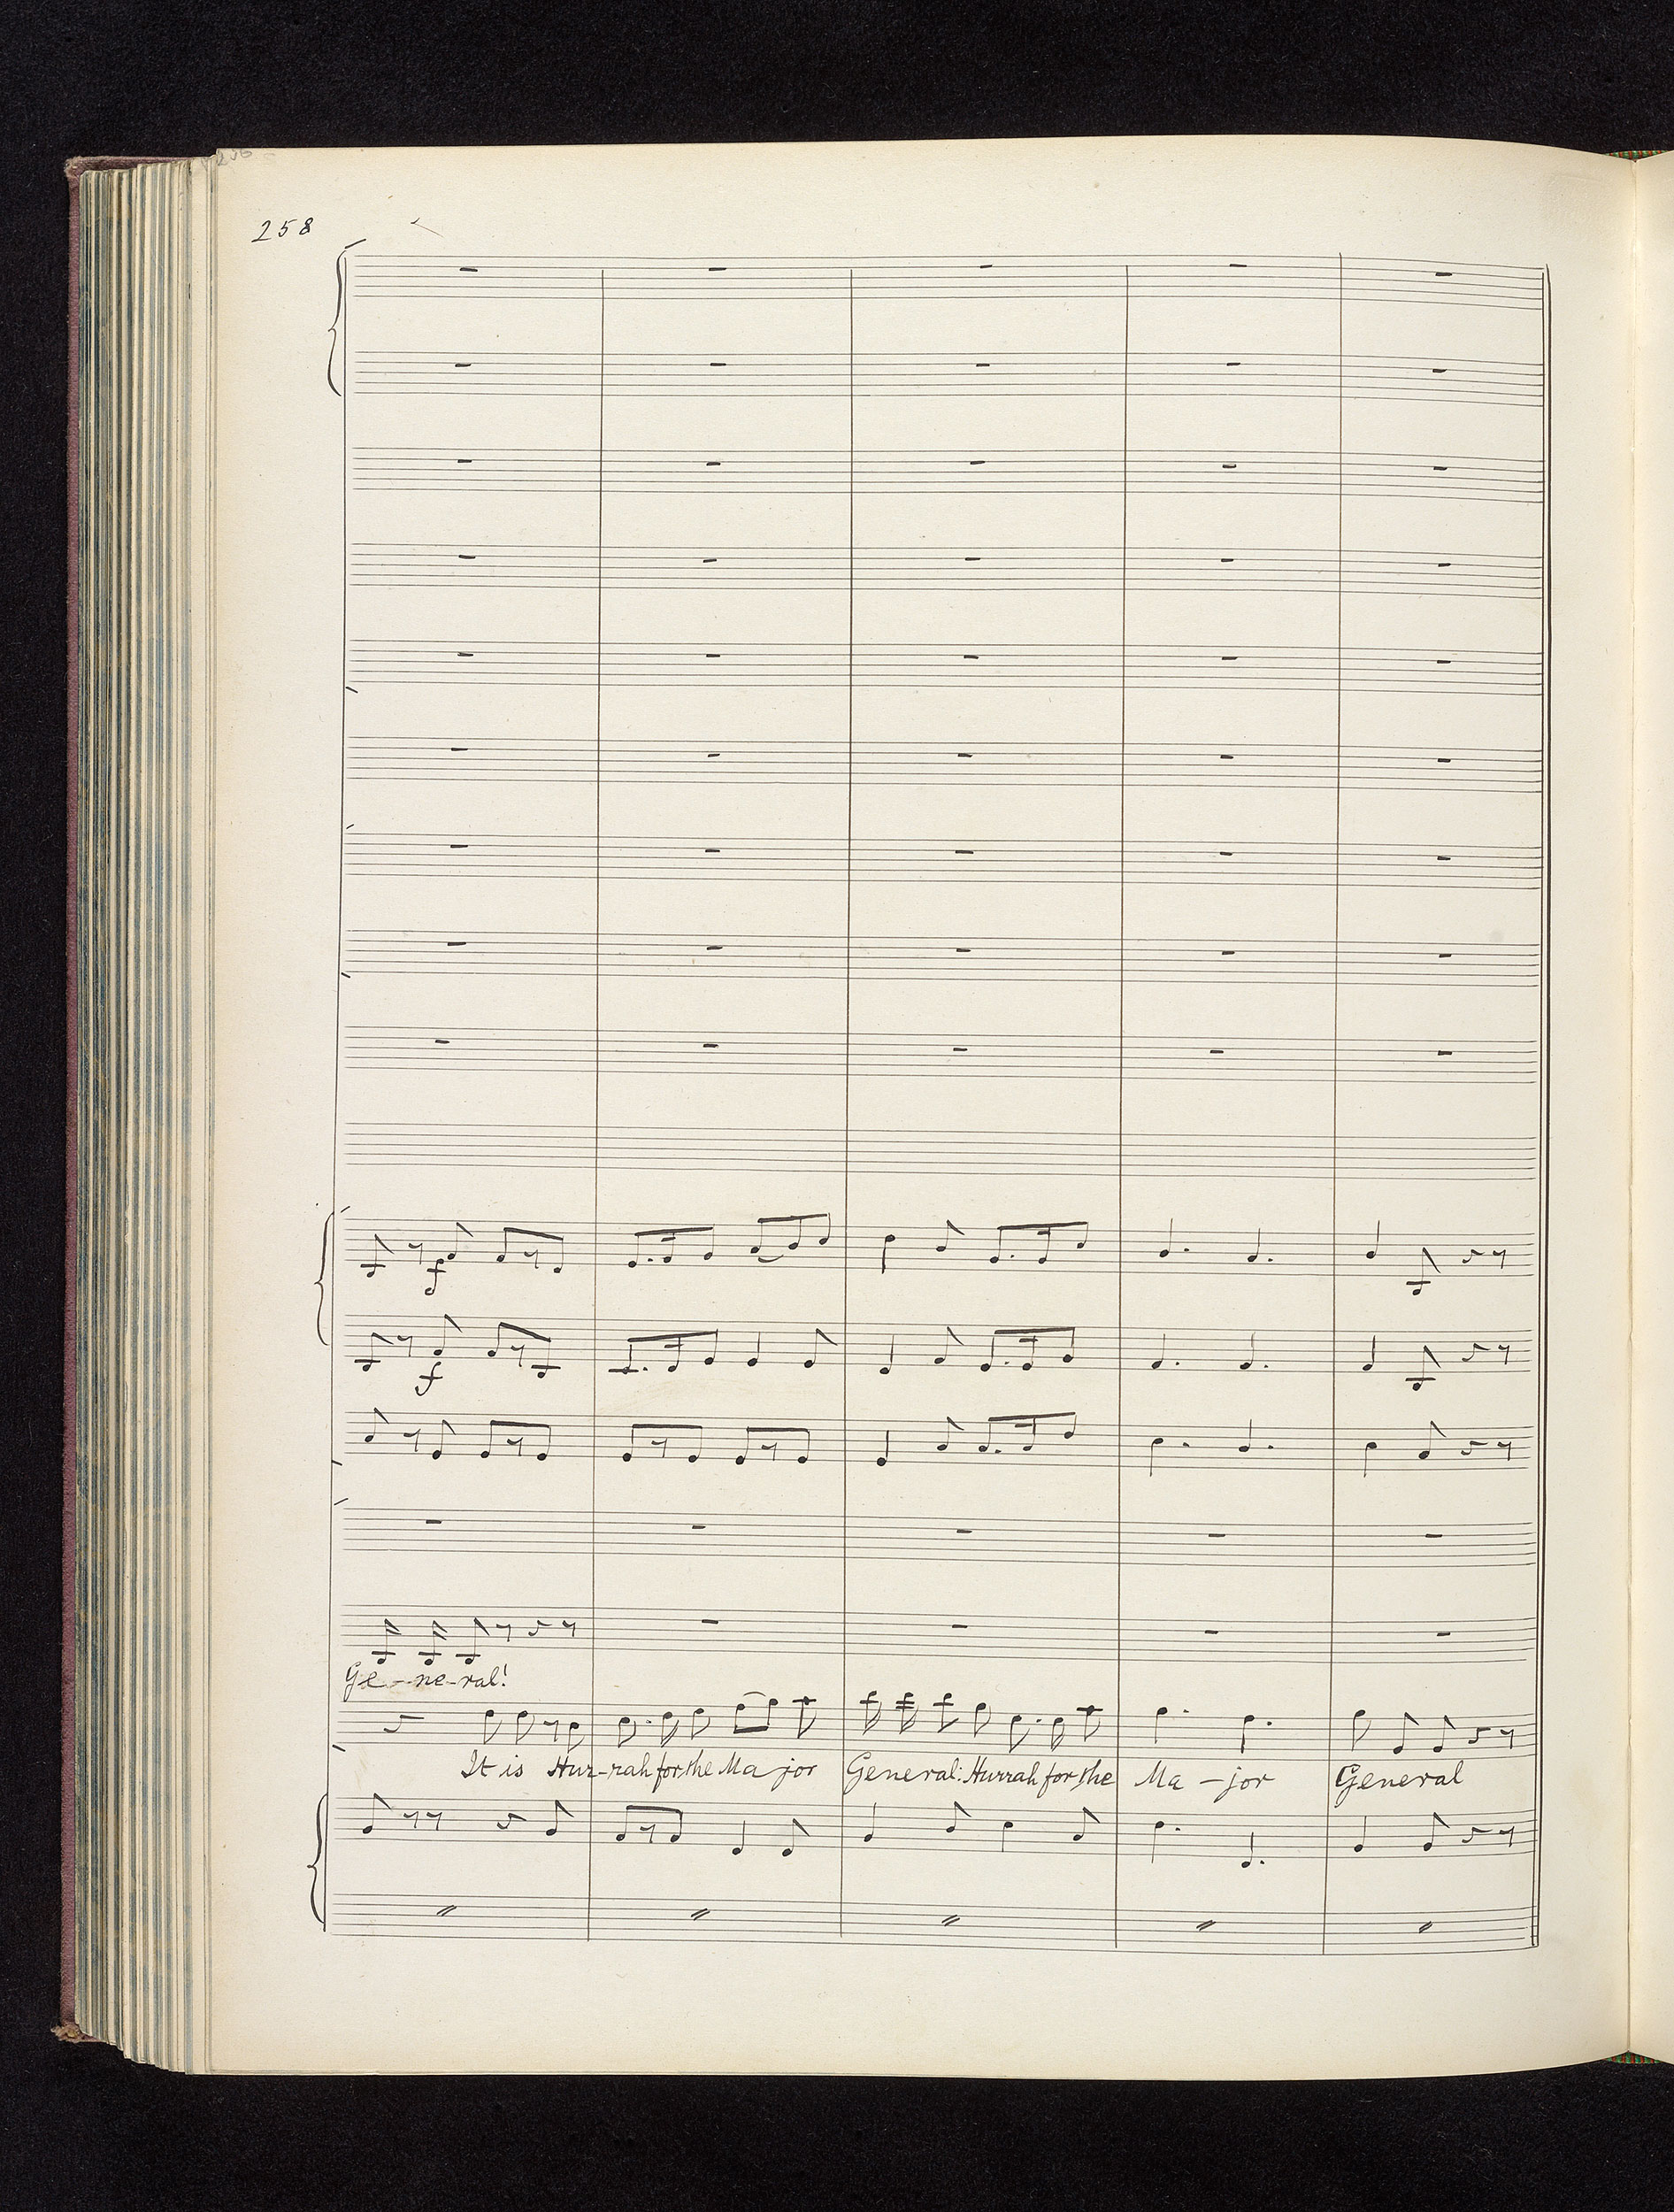 258
f
f
Ge-ne-ral!
It is Hur-rah for the Ma jor General: Hurrah for the Ma-jor General